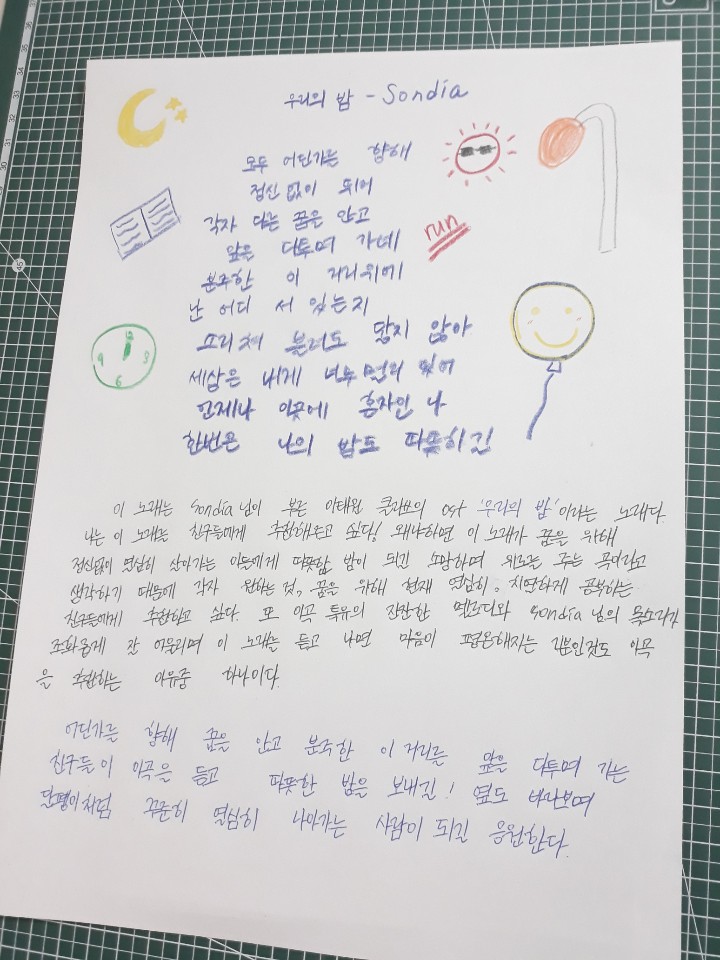 우리의 밤 - Sondia
모두 어딘가를 향해
정신 없이 뛰어
각자 다른 꿈을 안고
run
앞을 다투며 가네
분주한 이 거리위에
난 어디 서 있는지
소리쳐 불러도 닿지 않아
12
9 3
6
세상은 내게 너무 멀리 있어
언제나 이곳에 혼자인 나
한번은 나의 밤도 따뜻하길
이 노래는 Sondia님이 부른 이태원 클라쓰의 ost '우리의 밤'이라는 노래다.
나는 이 노래를 친구들에게 추천해주고 싶다! 왜냐하면 이 노래가 꿈을 위해
정신없이 열심히 살아가는 이들에게 따뜻한 밤이 되길 소망하며 위로를 주는 곡이라고
생각하기 때문에 각자 원하는 것, 꿈을 위해 현재 열심히, 치열하게 공부하는
친구들에게 추천하고 싶다. 또 이곡 특유의 잔잔한 멜로디와 Sondia 님의 목소리가
조화롭게 잘 어울리며 이 노래를 듣고 나면 마음이 평온해지는 기분인것도 이곡
을 추천하는 이유중 하나이다.
어딘가를 향해 꿈을 안고 분주한 이 거리를 앞을 다투며 가는
친구들이 이곡을 듣고 따뜻한 밤을 보내길! 옆도 바라보며
달팽이처럼 꾸준히 열심히 나아가는 사람이 되길 응원한다.